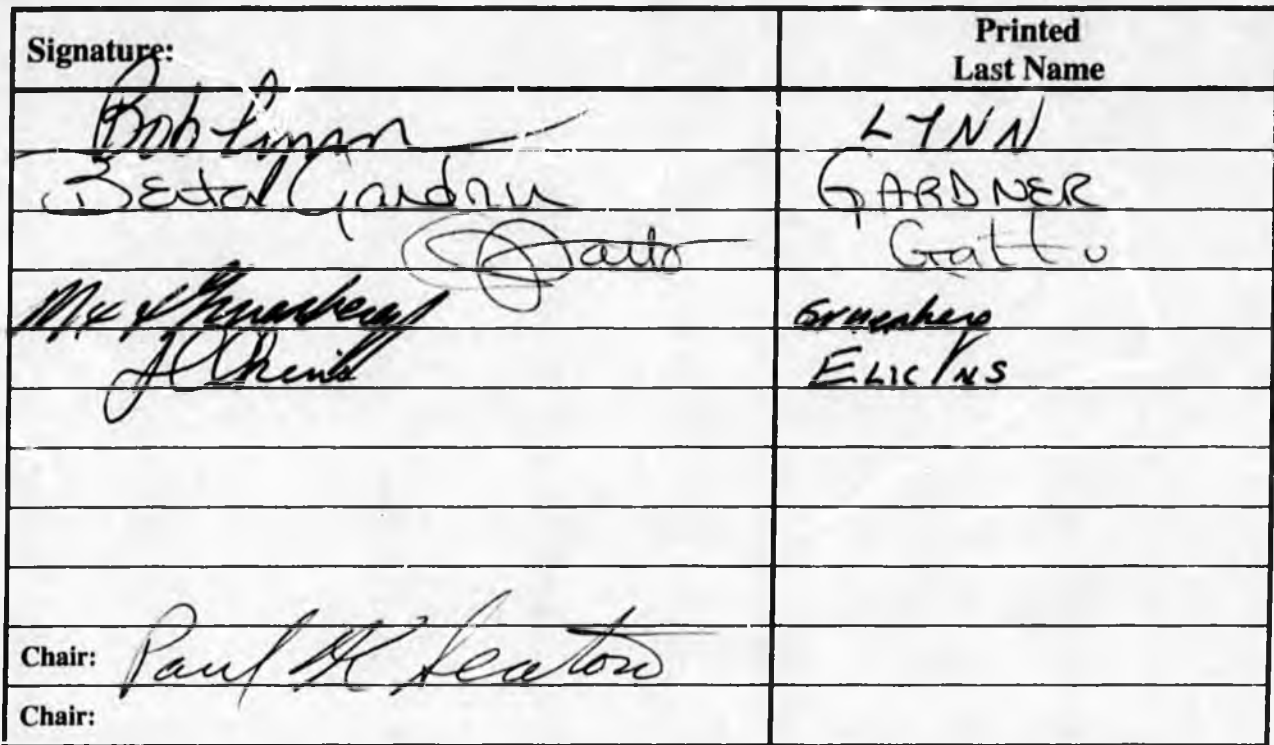 Signature: Printed Last Name
Bob Lynn LYNN
Gardner GARDNER
Gatto Gatto
Gruenberg
Elkins ELKINS
Chair: Paul K Seaton
Chair: